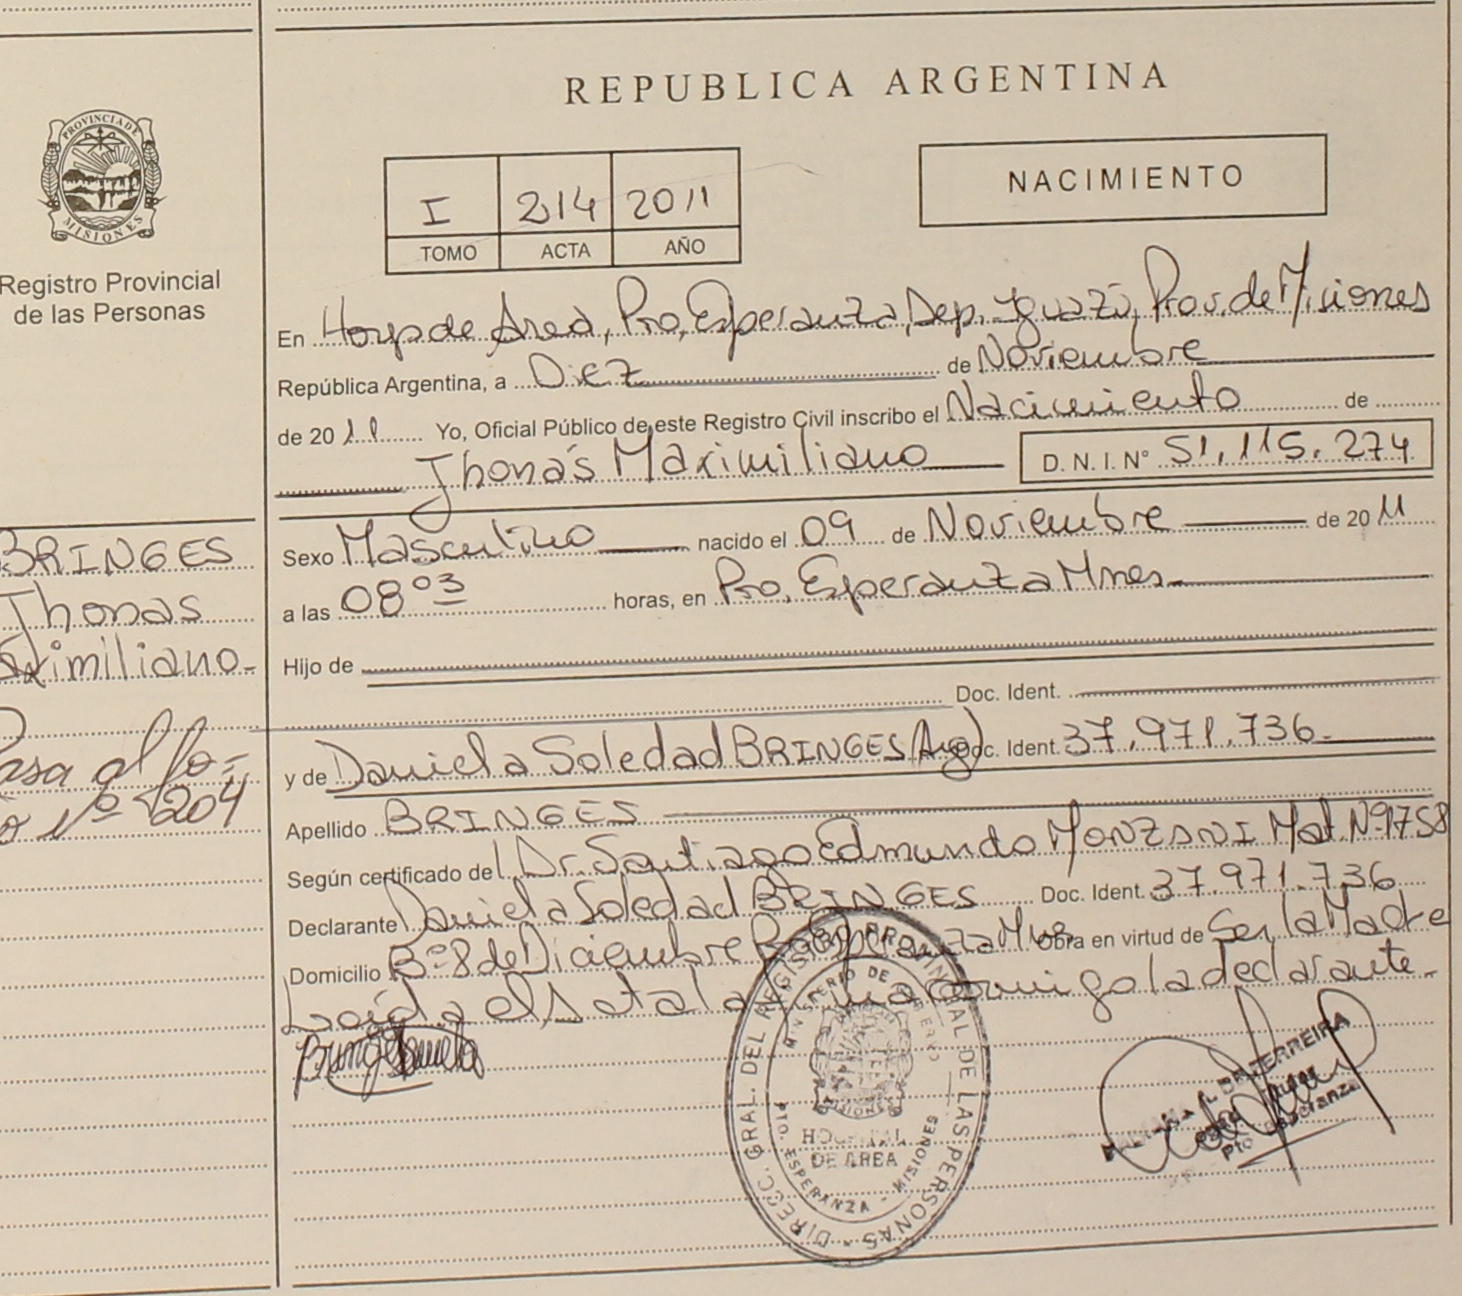 REPUBLICA ARGENTINA
PROVINCIA DE
MISIONES
Registro Provincial
de las Personas
I 214 2011
TOMO ACTA AÑO
NACIMIENTO
En Hosp de Area, Pto. Esperanza, Dep. Iguazú, Prov. de Misiones
República Argentina, a Diez de Noviembre
de 2011 Yo, Oficial Público de este Registro Civil inscribo el Nacimiento de
Jhonás Maximiliano D.N.I. N° 51.115.274
Sexo Masculino nacido el 09 de Noviembre de 2011
a las 08 03 horas, en Pto. Esperanza Mnes
Hijo de
Doc. Ident.
y de Daniela Soledad BRINGES (Arg) Doc. Ident. 37.971.736
Apellido BRINGES
Según certificado del Dr. Santiago Edmundo MONZANI Mat. Nº 1758
Declarante Daniela Soledad BRINGES Doc. Ident. 37.971.736
Domicilio Bº 8 de Diciembre Pto Esperanza Mnes Obra en virtud de Ser la Madre
Leída el Acta la firma conmigo la declarante.
BRINGES
Jhonas
aximiliano
Pasa al fo-
Nº 204
DIRECC. GRAL. DEL REGISTRO PROVINCIAL DE LAS PERSONAS
MINISTERIO DE GOBIERNO
MISIONES
HOSPITAL
DE AREA
PTO. ESPERANZA - MISIONES
FERREIRA
Pto Esperanza